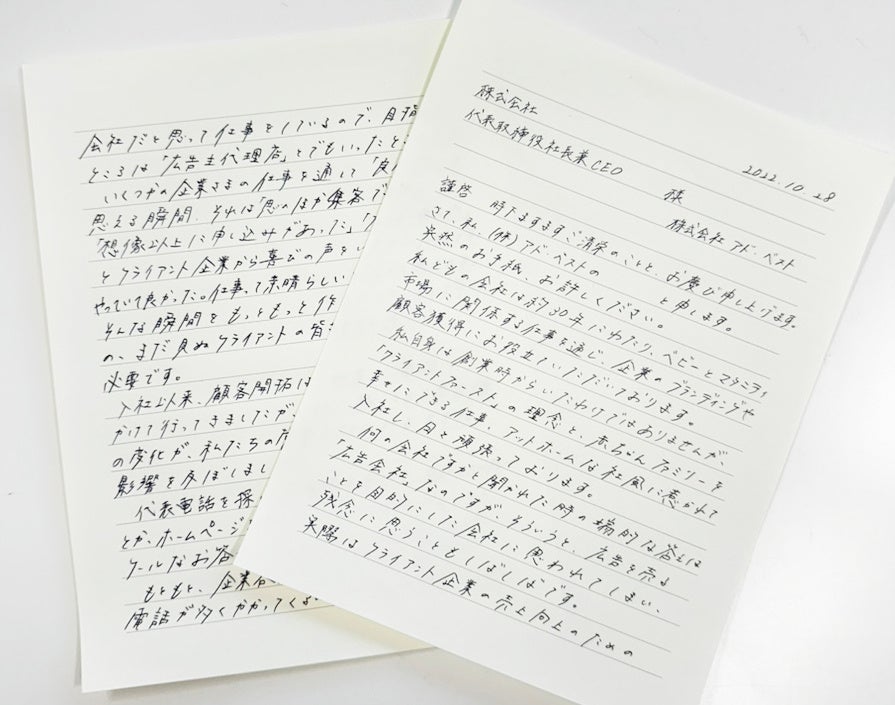 株式会社
代表取締役社長兼CEO
様
2022.10.28
株式会社アド・ベスト
謹啓 時下ますますご清栄のことと、お慶び申し上げます。
さて、私、(株)アド・ベストの と申します。
突然のお手紙、お許しください。
私どもの会社は約30年にわたり、ベビーとマタニティ
市場に関係する仕事を通じ、企業のブランディングや
顧客獲得にお役立ちいただいております。
私自身は創業時からいたわけではありませんが、
「クライアントファースト」の理念と、赤ちゃんファミリーを
幸せにできる仕事、アットホームな社風に惹かれて
入社し、日々頑張っております。
何の会社ですかと聞かれた時の端的な答えは
「広告会社」なのですが、そういうと、広告を売る
ことを目的にした会社に思われてしまい、
残念に思うこともしばしばです。
実際はクライアント企業の売上向上のための
会社だと思って仕事をしているので、目指
ところは「広告主代理店」とでもいったと
いくつかの企業さまの仕事を通して「良
思える瞬間、それは「思いのほか集客で
「想像以上に申し込みがあった」
とクライアント企業から喜びの声をい
やっていて良かった。仕事って素晴らしい
そんな瞬間をもっともっと作
の、まだ見ぬクライアントの皆
必要です。
入社以来、顧客開拓は
かけて行ってきましたが、
の変化が、私たちの
影響を及ぼしまし
代表電話を探
とか、ホームページ
クールなお答
もともと、企業
電話が多くかかってくる